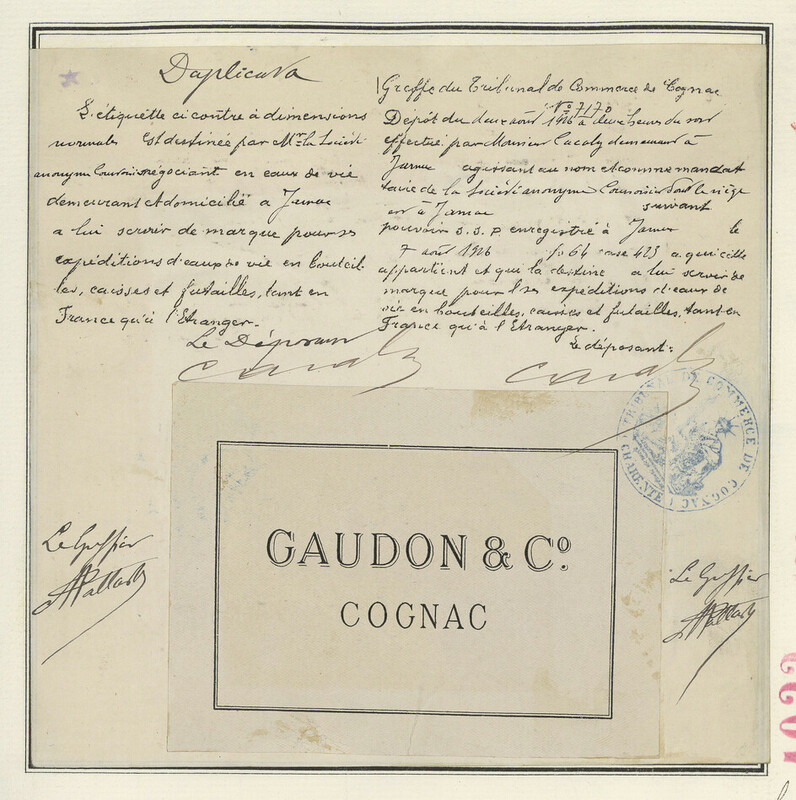 Duplicata
L'étiquette ci contre à dimensions
normales est destinée par Mr la Société
anonyme Courvoisier négociant en eaux de vie
demeurant et domicilié a Jarnac
a lui servir de marque pour ses
expéditions d'eaux de vie en bouteil-
les, caisses et futailles, tant en
France qu'à l'Etranger.
Le Déposant
Greffe du Tribunal de Commerce de Cognac
No 7170
Dépôt du deux août 1926 à deux heures du soir
effectué par Monsieur demeurant à
Jarnac agissant au nom et comme mandat
taire de la Société anonyme Courvoisier dont le siège
est à Jarnac suivant
pouvoir S.S.P. enregistré à Jarnac le
7 août 1926 fo 64 case 423 a qui cette
appartient et que la destine a lui servir de
marque pour ses expéditions d'eaux de
vie en bouteilles, caisses et futailles, tant en
France qu'à l'Etranger.
Le déposant:
TRIBUNAL DE COMMERCE DE COGNAC
CHARENTE
GAUDON & Co.
COGNAC
Le Greffier
Le Greffier
1022